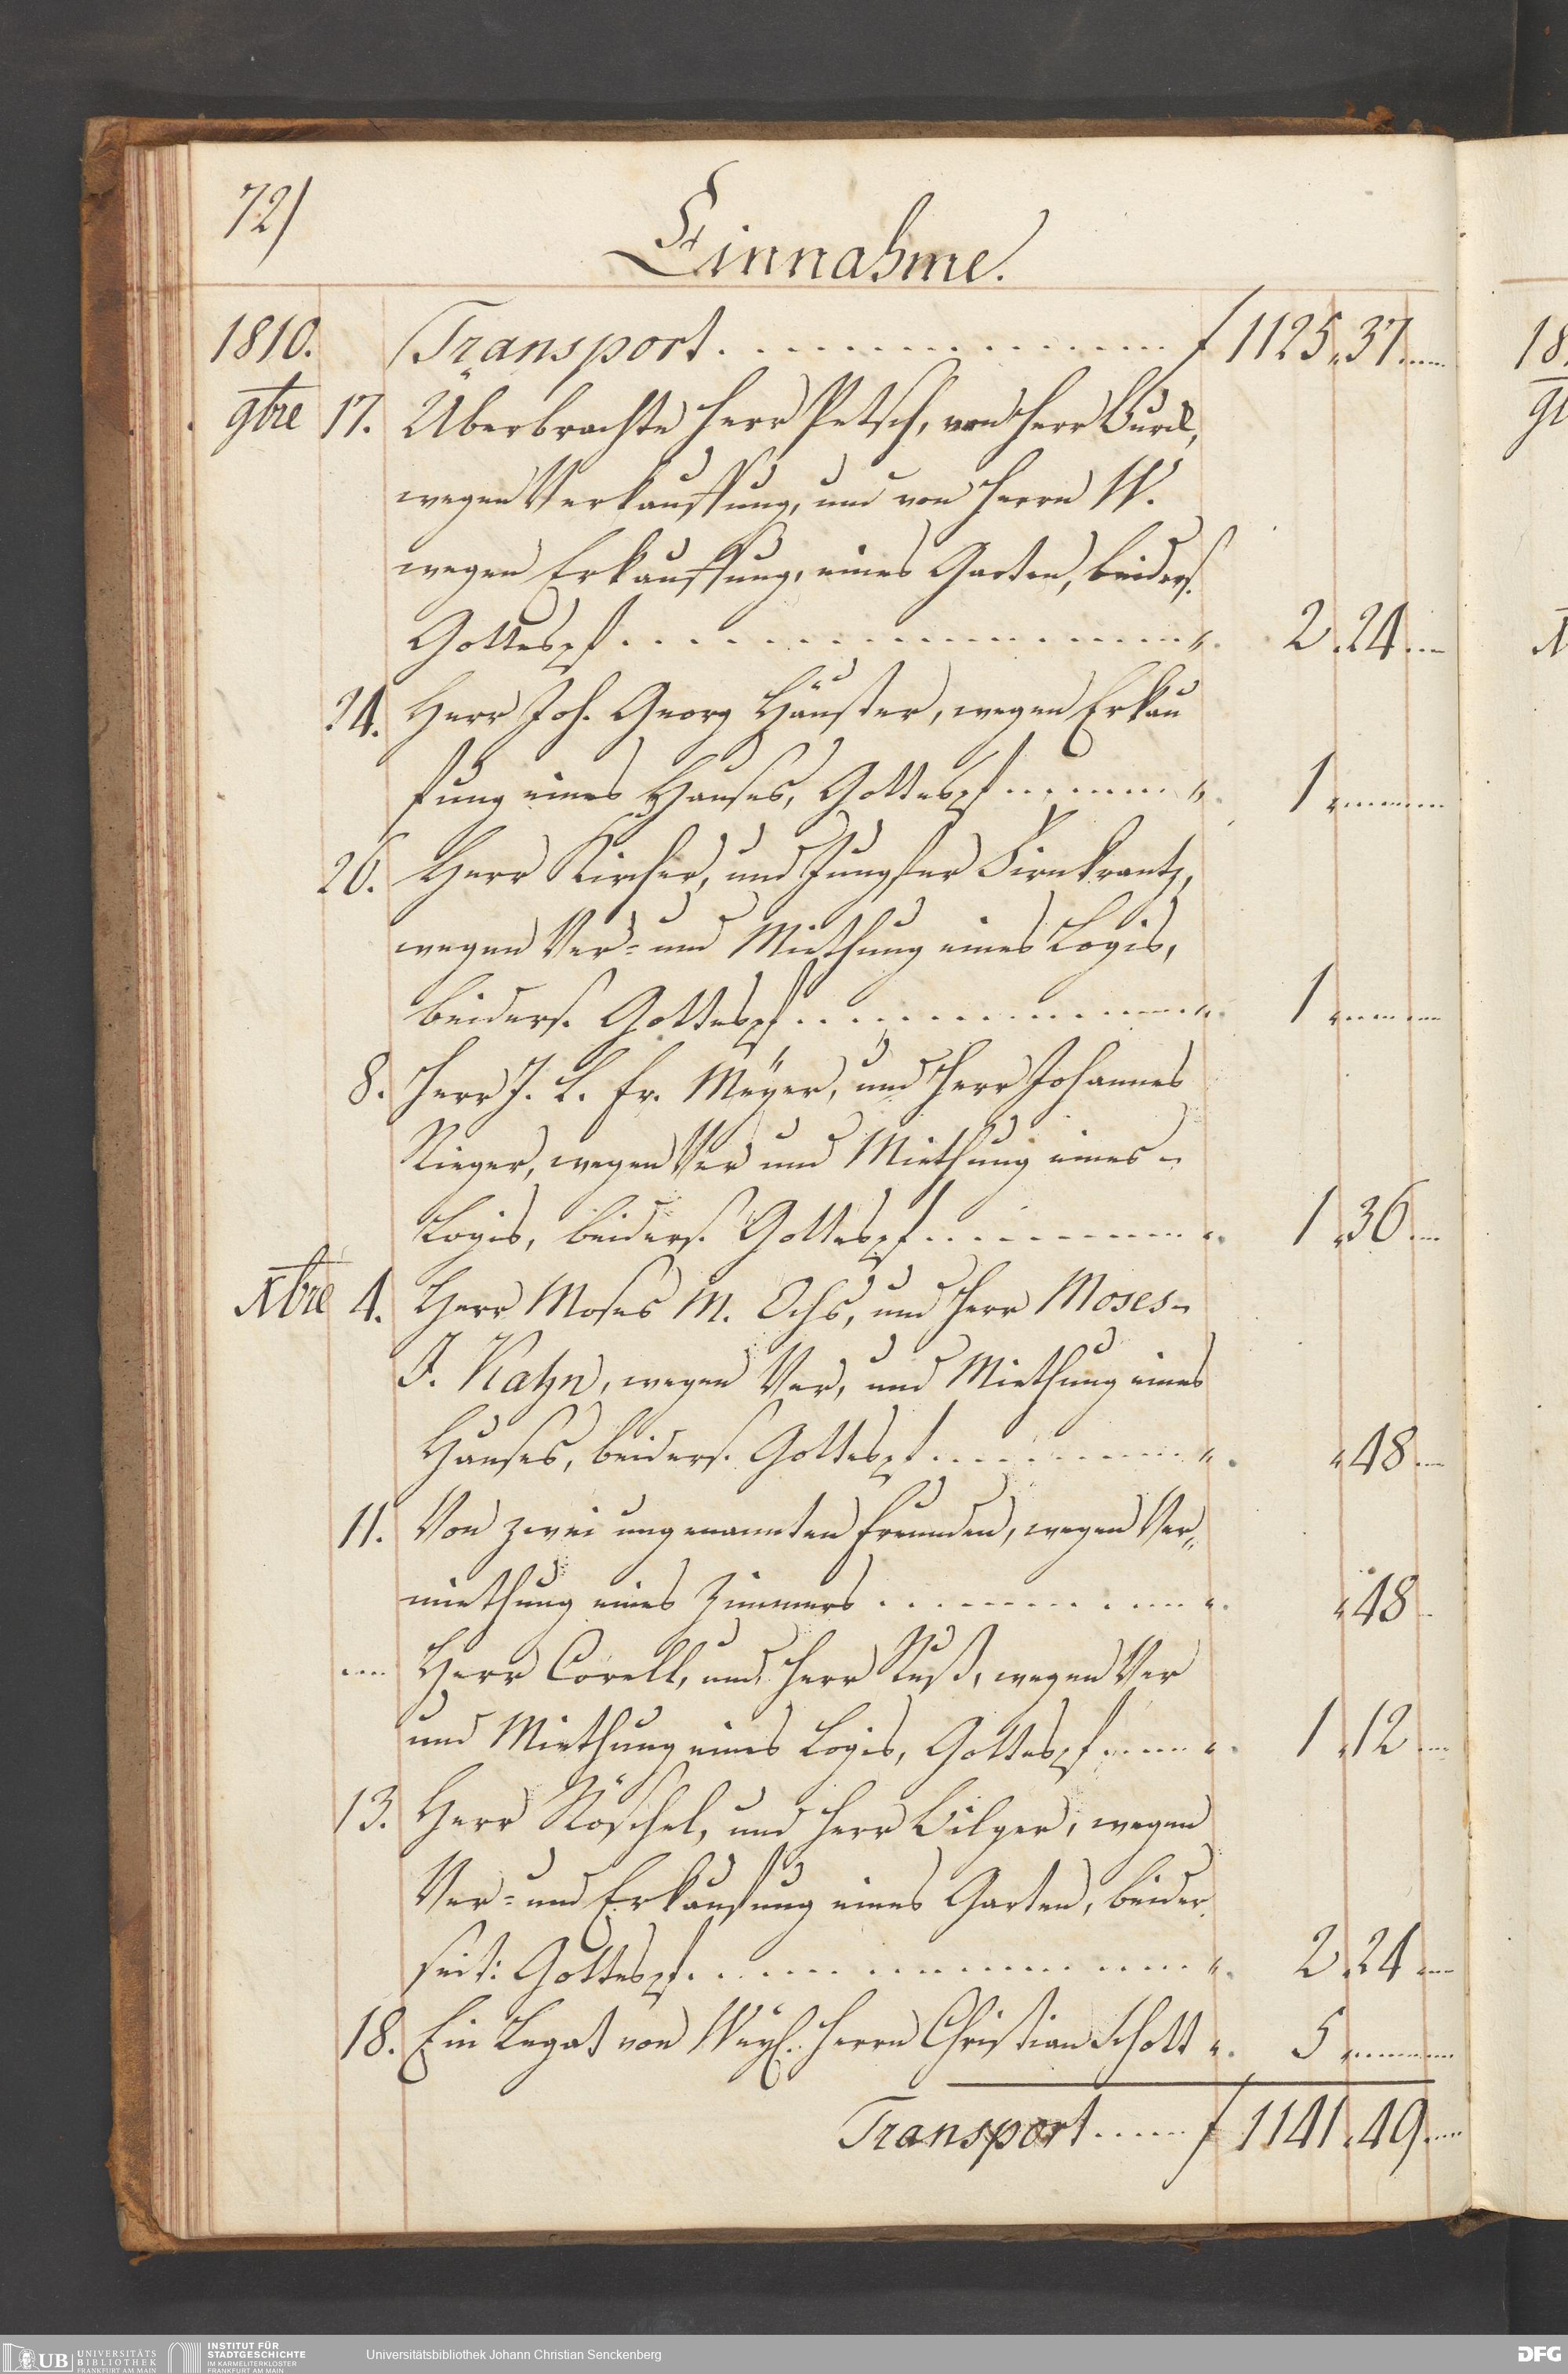 72)
Einnahme.
1810. Transport . . . . . . . . . . f 1125 „ 37 . . . .
9bre 17. Überbrachte Herr Petsch, von Herr Burck,
wegen Verkauffung, und von Herrn W.
wegen Erkauffung, eines Garten, beiders.
Gottespf . . . . . . . . . . „ 2 „ 24 . . .
24. Herr Joh. Georg Häuster, wegen Erkau
fung eines Hauses, Gottespf . . . . . . „ 1 „ . . . . .
26. Herr Kircher, und Jungfer Firnkrantz,
wegen Ver- und Miethung eines Logis,
beiders. Gottespf . . . . . . . . . „ 1 „ . . . . .
8. Herr J. L. Fr. Meÿer, und Herr Johannes
Rieger, wegen Ver und Miethung eines
Logis, beiders. Gottespf . . . . . . . „ 1 „ 36 . . .
Xbre 4. Herr Moses M. Ochs, und Herr Moses
J. Kahn, wegen Ver, und Miethung eines
Hauses, beiders. Gottespf . . . . . . . „ „ 48 . . .
11. Von zwei ungenannten Freunden, wegen Ver„
miethung eines Zimmers . . . . . . . „ „ 48 . .
. . . . Herr Corell, und Herr Ruß, wegen Ver
und Miethung eines Logis, Gottespf . . . . „ 1 „ 12 . . .
13. Herr Röschel, und Herr Bilger, wegen
Ver- und Erkaufung eines Garten, beider
seit: Gottespf . . . . . . . . . . „ 2 „ 24 . . .
18. Ein Legat von Weyl. Herrn Christian Schott „ 5 „ . . . . .
Transport . . . . . f 1141 „ 49 . . . .
18
9b
X
UB UNIVERSITÄTS
BIBLIOTHEK
FRANKFURT AM MAIN
INSTITUT FÜR
STADTGESCHICHTE
IM KARMELITERKLOSTER
FRANKFURT AM MAIN
Universitätsbibliothek Johann Christian Senckenberg
DFG